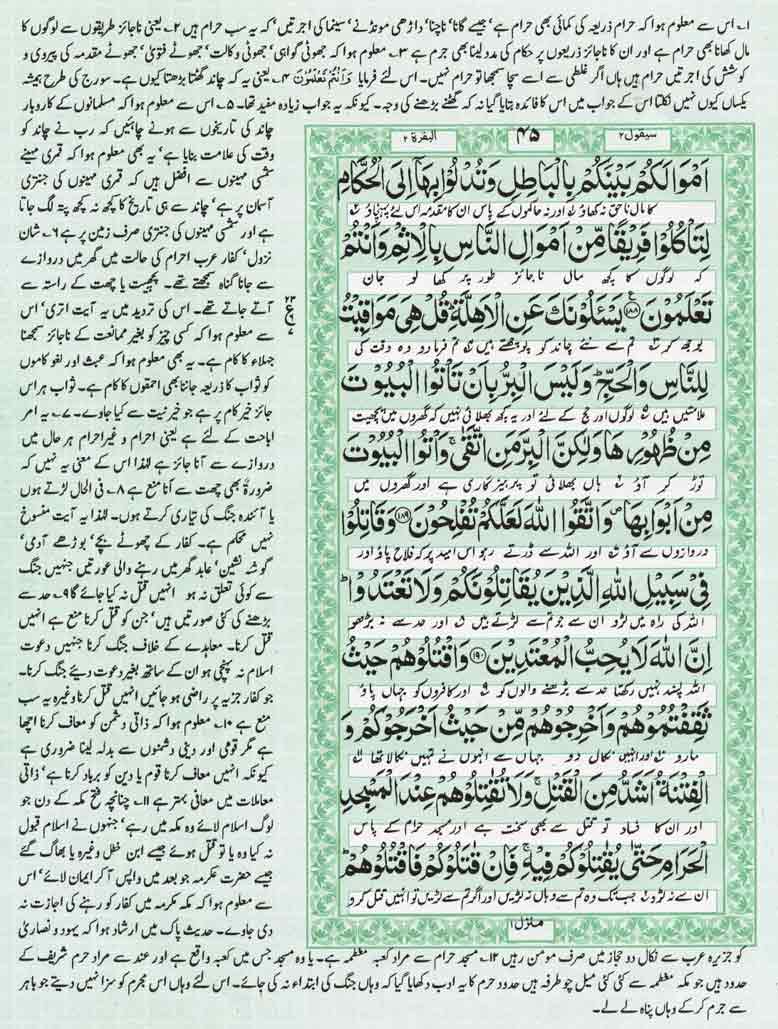 ۱۔ اس سے معلوم ہوا کہ حرام ذریعہ کی کمائی بھی حرام ہے جیسے گانا' ناچنا' داڑھی مونڈنے' سینما کی اجرتیں' کہ یہ سب حرام ہیں ۲۔ یعنی ناجائز طریقوں سے لوگوں کا
مال کھانا بھی حرام ہے اور ان کا ناجائز ذریعوں پر حکام کی مدد لینا بھی جرم ہے ۳۔ معلوم ہوا کہ جھوٹی گواہی' جھوٹی وکالت' جھوٹے فتویٰ' جھوٹے مقدمہ کی پیروی و
کوشش کی اجرتیں حرام ہیں ہاں اگر غلطی سے اسے سچا سمجھا تو حرام نہیں۔ اس لئے فرمایا وَاَنْتُمْ تَعْلَمُوْنَ ۴۔ یعنی یہ کہ چاند گھٹتا بڑھتا کیوں ہے۔ سورج کی طرح ہمیشہ
یکساں کیوں نہیں نکلتا اس کے جواب میں اس کا فائدہ بتایا گیا نہ کہ گھٹنے بڑھنے کی وجہ۔ کیونکہ یہ جواب زیادہ مفید تھا۔ ۵۔ اس سے معلوم ہوا کہ مسلمانوں کے کاروبار
چاند کی تاریخوں سے ہونے چاہئیں کہ رب نے چاند کو
وقت کی علامت بنایا ہے' یہ بھی معلوم ہوا کہ قمری مہینے
شمسی مہینوں سے افضل ہیں کہ قمری مہینوں کی جنتری
آسمان پر ہے' چاند سے ہی تاریخ کا کچھ نہ کچھ پتہ لگ جاتا
ہے اور شمسی مہینوں کی جنتری صرف زمین پر ہے ۶۔ شان
نزول' کفار عرب احرام کی حالت میں گھر میں دروازے
سے جانا گناہ سمجھتے تھے۔ پچھیت یا چھت کے راستہ سے
آتے جاتے تھے۔ اس کی تردید میں یہ آیت اتری' اس
سے معلوم ہوا کہ کسی چیز کو بغیر ممانعت کے ناجائز سمجھنا
جہلاء کا کام ہے۔ یہ بھی معلوم ہوا کہ عبث اور لغو کاموں
کو ثواب کا ذریعہ جاننا بھی احمقوں کا کام ہے۔ ثواب ہر اس
جائز خیر کام پر ہے جو خیر نیت سے کیا جاوے۔ ۷۔ یہ امر
اباحت کے لئے ہے یعنی احرام و غیر احرام ہر حال میں
دروازے سے آنا جائز ہے لہٰذا اس کے معنی یہ نہیں کہ
ضرورۃً بھی چھت سے آنا منع ہے ۸۔ فی الحال لڑتے ہوں
یا آئندہ جنگ کی تیاری کرتے ہوں۔ لہٰذا یہ آیت منسوخ
نہیں محکم ہے۔ کفار کے چھوٹے بچے' بوڑھے آدمی'
گوشہ نشین' عابد گھر میں رہنے والی عورتیں جنہیں جنگ
سے کوئی تعلق نہ ہو انہیں قتل نہ کیا جائے گا ۹۔ حد سے
بڑھنے کی کئی صورتیں ہیں' جن کو قتل کرنا منع ہے انہیں
قتل کرنا۔ معاہدے کے خلاف جنگ کرنا جنہیں دعوت
اسلام نہ پہنچی ہو ان کے ساتھ بغیر دعوت دیئے جنگ کرنا۔
جو کفار جزیہ پر راضی ہو جائیں انہیں قتل کرنا وغیرہ یہ سب
منع ہے ۱۰۔ معلوم ہوا کہ ذاتی دشمن کو معاف کرنا اچھا
ہے مگر قومی اور دینی دشمنوں سے بدلہ لینا ضروری ہے
کیونکہ انہیں معاف کرنا قوم یا دین کو برباد کرنا ہے' ذاتی
معاملات میں معافی بہتر ہے ۱۱۔ چنانچہ فتح مکہ کے دن جو
لوگ اسلام لائے وہ مکہ میں رہے' جنہوں نے اسلام قبول
نہ کیا وہ یا تو قتل ہوئے جیسے ابن خطل وغیرہ یا بھاگ گئے
جیسے حضرت عکرمہ جو بعد میں واپس آ کر ایمان لائے' اس
سے معلوم ہوا کہ مکہ مکرمہ میں کفار کو رہنے کی اجازت نہ
دی جاوے۔ حدیث پاک میں ارشاد ہوا کہ یہود و نصاریٰ
سیقول ۲
۴۵
البقرة ۲
اَمْوَالَكُمْ بَيْنَكُمْ بِالْبَاطِلِ وَتُدْلُوْا بِهَآ اِلَى الْحُكَّامِ
کا مال ناحق نہ کھاؤ اور نہ حاکموں کے پاس ان کا مقدمہ اس لئے پہنچاؤ
لِتَاْكُلُوْا فَرِيْقًا مِّنْ اَمْوَالِ النَّاسِ بِالْاِثْمِ وَاَنْتُمْ
کہ لوگوں کا کچھ مال ناجائز طور پر کھا لو جان
تَعْلَمُوْنَ ۱۸۸ يَسْـَٔلُوْنَكَ عَنِ الْاَهِلَّةِ قُلْ هِيَ مَوَاقِيْتُ
بوجھ کر تم سے نئے چاند کو پوچھتے ہیں تم فرما دو وہ وقت کی
لِلنَّاسِ وَالْحَجِّ وَلَيْسَ الْبِرُّ بِاَنْ تَاْتُوا الْبُيُوْتَ
علامتیں ہیں لوگوں اور حج کے لئے اور یہ کچھ بھلائی نہیں کہ گھروں میں پچھیت
مِنْ ظُهُوْرِهَا وَلٰكِنَّ الْبِرَّ مَنِ اتَّقٰى وَاْتُوا الْبُيُوْتَ
توڑ کر آؤ ہاں بھلائی تو پرہیزگاری ہے اور گھروں میں
مِنْ اَبْوَابِهَا وَاتَّقُوا اللّٰهَ لَعَلَّكُمْ تُفْلِحُوْنَ ۱۸۹ وَقَاتِلُوْا
دروازوں سے آؤ اور اللہ سے ڈرتے رہو اس امید پر کہ فلاح پاؤ اور
فِيْ سَبِيْلِ اللّٰهِ الَّذِيْنَ يُقَاتِلُوْنَكُمْ وَلَا تَعْتَدُوْا
اللہ کی راہ میں لڑو ان سے جو تم سے لڑتے ہیں اور حد سے نہ بڑھو
اِنَّ اللّٰهَ لَا يُحِبُّ الْمُعْتَدِيْنَ ۱۹۰ وَاقْتُلُوْهُمْ حَيْثُ
اللہ پسند نہیں رکھتا حد سے بڑھنے والوں کو اور کافروں کو جہاں پاؤ
ثَقِفْتُمُوْهُمْ وَاَخْرِجُوْهُمْ مِّنْ حَيْثُ اَخْرَجُوْكُمْ وَ
مارو اور انہیں نکال دو جہاں سے انہوں نے تمہیں نکالا تھا
الْفِتْنَةُ اَشَدُّ مِنَ الْقَتْلِ وَلَا تُقٰتِلُوْهُمْ عِنْدَ الْمَسْجِدِ
اور ان کا فساد تو قتل سے بھی سخت ہے اور مسجد حرام کے پاس
الْحَرَامِ حَتّٰى يُقٰتِلُوْكُمْ فِيْهِ فَاِنْ قٰتَلُوْكُمْ فَاقْتُلُوْهُمْ
ان سے نہ لڑو جب تک وہ تم سے وہاں نہ لڑیں اور اگر تم سے لڑیں تو انہیں قتل کرو
منزل ۱
کو جزیرہ عرب سے نکال دو حجاز میں صرف مومن رہیں ۱۲۔ مسجد حرام سے مراد کعبہ معظمہ ہے۔ یا وہ مسجد جس میں کعبہ واقع ہے اور عند سے مراد حرم شریف کے
حدود ہیں جو مکہ معظمہ سے کئی کئی میل چو طرفہ ہیں حدود حرم کا یہ ادب دکھایا گیا کہ وہاں جنگ کی ابتداء نہ کی جائے۔ اس لئے وہاں اس مجرم کو سزا نہیں دیتے جو باہر
سے جرم کر کے وہاں پناہ لے لے۔